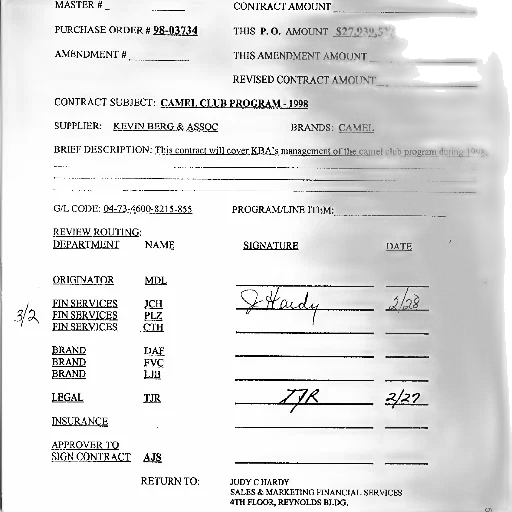 MASTER #
CONTRACT AMOUNT
PURCHASE ORDER # 98-03734 THIS P. O. AMOUNT
AMENDMENT # THIS AMENDMENT AMOUNT
REVISED CONTRACT AMOUNT
CONTRACT SUBJECT: CAMEL CLUB PROGRAM - 1998
SUPPLIER: KEVIN BERG & ASSOC BRANDS: CAMEL
BRIEF DESCRIPTION: This contract will cover KBA's management of the camel club program during 1998.
G/L CODE: 04-73-4600-8215-855 PROGRAM/LINE ITEM:
REVIEW ROUTING:
DEPARTMENT NAME SIGNATURE DATE
ORIGINATOR MDL
FIN SERVICES JCH J Hardy 2/28
3/2 FIN SERVICES PLZ
FIN SERVICES CTH
BRAND DAF
BRAND FVC
BRAND LJB
LEGAL TJR TJR 2/27
INSURANCE
APPROVER TO
SIGN CONTRACT AJS
RETURN TO: JUDY C HARDY
SALES & MARKETING FINANCIAL SERVICES
4TH FLOOR, REYNOLDS BLDG.